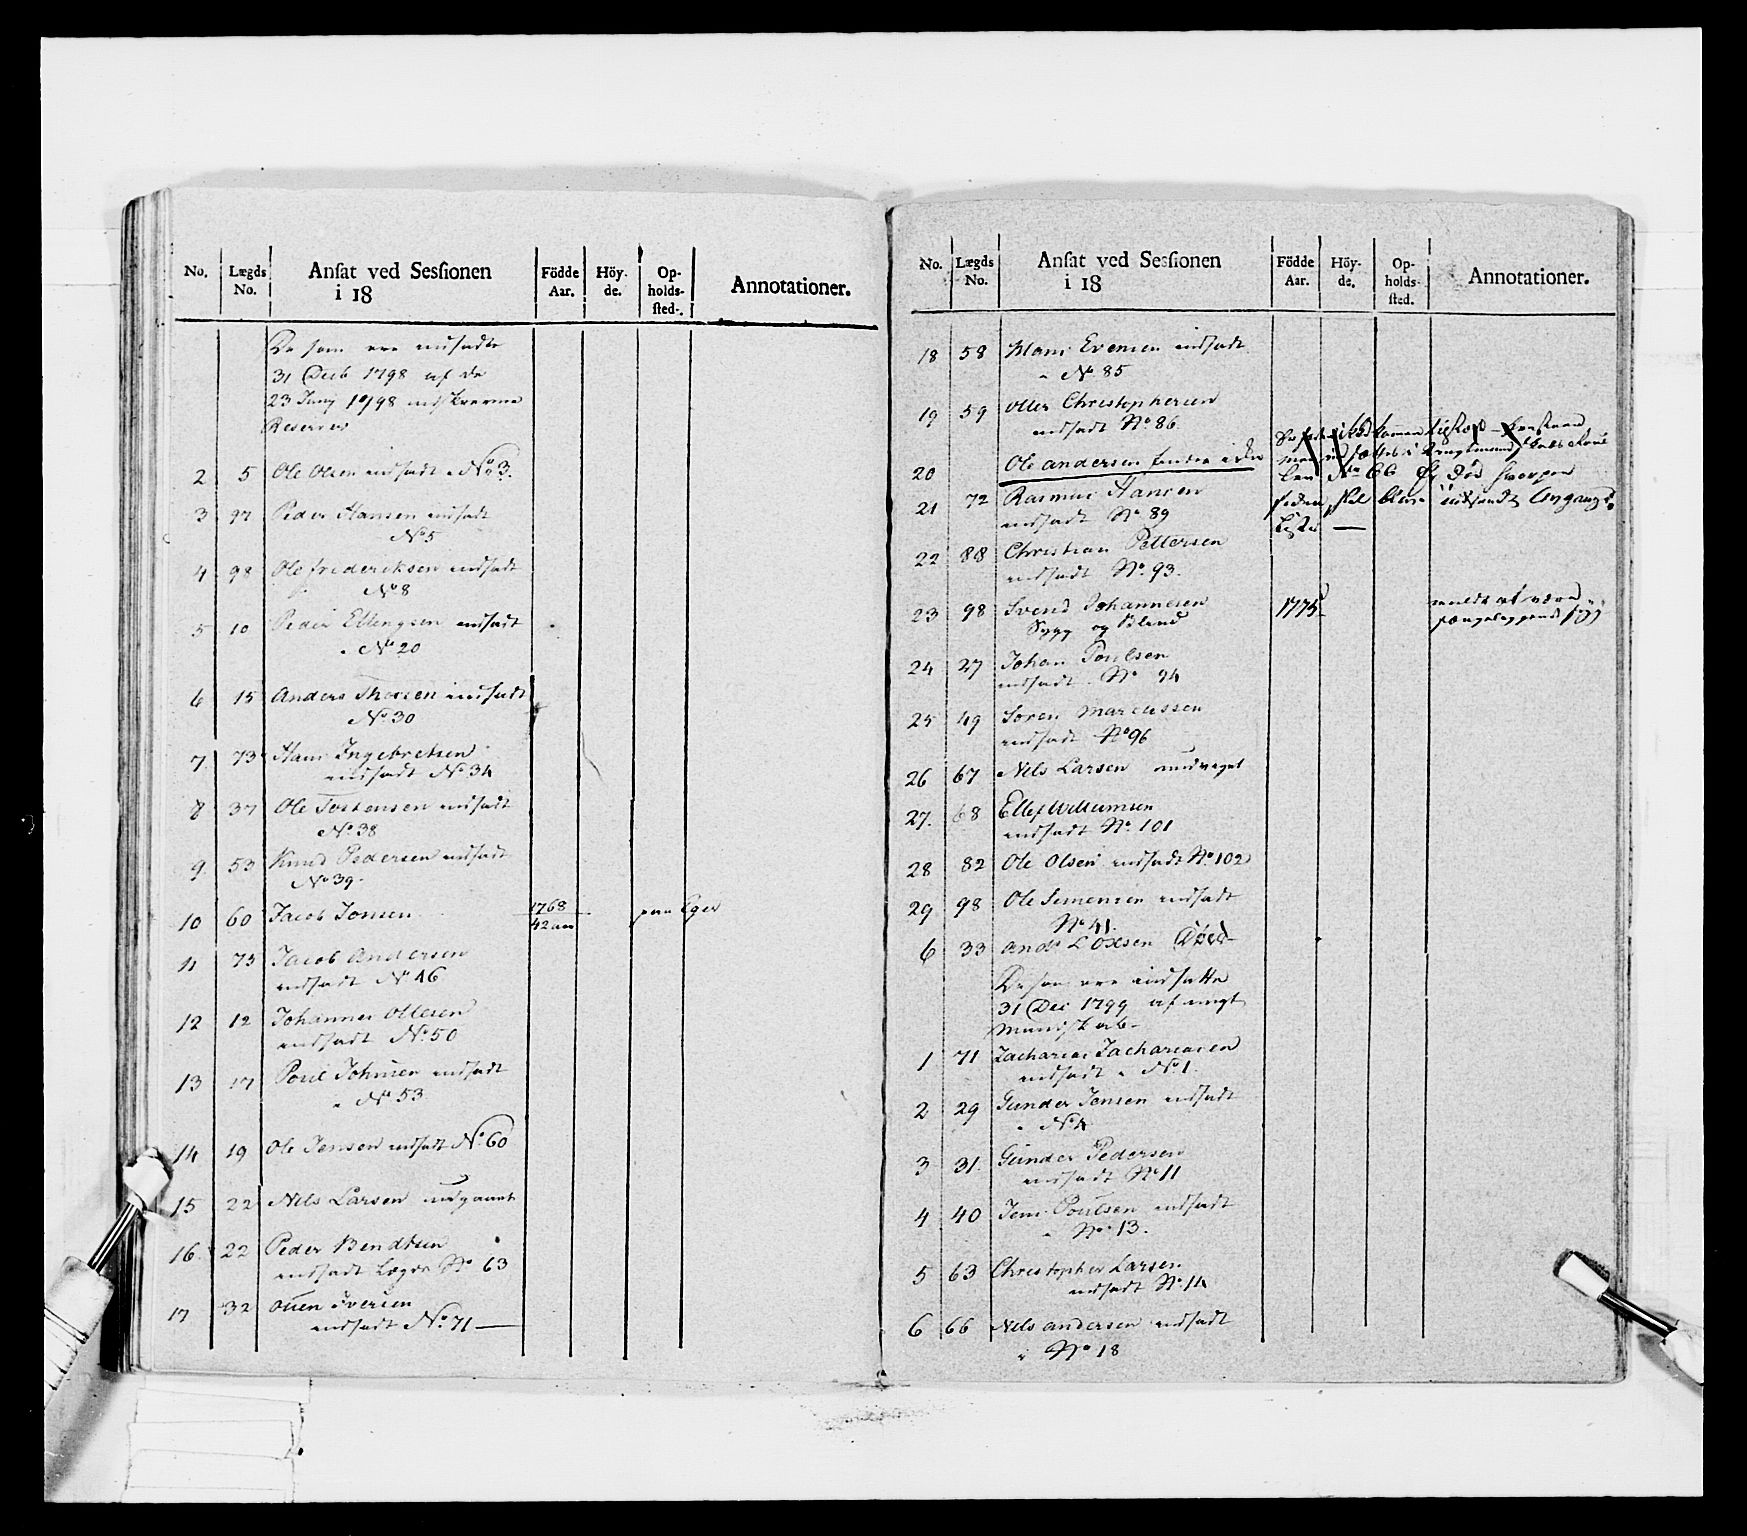 No. Lægds No. Ansat ved Sessionen i 18 Födde Aar. Höyde. Opholds-sted-. Annotationer.
De som ere indsadte
31 Decb 1798 af de
23 Juny 1798
Reserver
2 5 Ole Olsen indsadt No 3.
3 97 Peder Hansen indsadt
No 5
4 98 Ole frederiksen indsadt
No 8
5 10 Peder Ellengsen indsadt
No 20
6 15 Anders Thorsen indsadt
No 30
7 73 Hans Ingebretsen
indsadt No 34
8 37 Ole Tostensen indsadt
No. 38
9 53 Knud Pedersen indsadt
No 39.
10 60 Jacob Jonsen 1768 paa Eger
42 aar
11 73 Jacob Andersen
indsadt No 46
12 12 Johannes Ollesen
indsadt No. 50
13 17 Poul Johnsen indsadt
No 53
14 19 Ole Jensen indsadt No. 60
15 22 Nils Larsen udgaaet
16. 22 Peder Bendtsen
indsadt Lægds No 63
17 32 Iversen
indsadt No. 71 —
No. Lægds No. Ansat ved Sessionen i 18 Födde Aar. Höyde. Opholds-sted. Annotationer.
18 58 Hans Evensen indsadt
No. 85
19 59 Christophersen
indsadt No. 86.
20 Ole Andersen
No 66
21 72 Rasmus Hansen
indsadt No 89
22 88 Christian Pettersen
indsadt No. 93.
23 98 Svend Johannesen 1775
Svag og Blind
24 27 Johan Poulsen
indsadt No 94
25 49 Soren Marcussen
indsadt No 96
26 67 Nils Larsen
27. 68 Ellef Willumsen
indsadt No. 101
28 82 Ole Olsen indsadt No. 102
29 98 Ole Simensen indsadt
No 41.
6 33 Ands Olsen Död
De som ere indsatte
31 Dec 1799 af ungt
Mandskab —
1 71 Zacharias Zachariasen
indsadt No. 1.
2 29 Gunder Jensen indsadt
No 4
3 31. Gunder Pedersen
indsadt No 11
4 40 Jens Poulsen indsadt
No. 13.
5 63 Christopher Larsen
indsadt No. 14
6 66 Nils Andersen indsadt
No 18